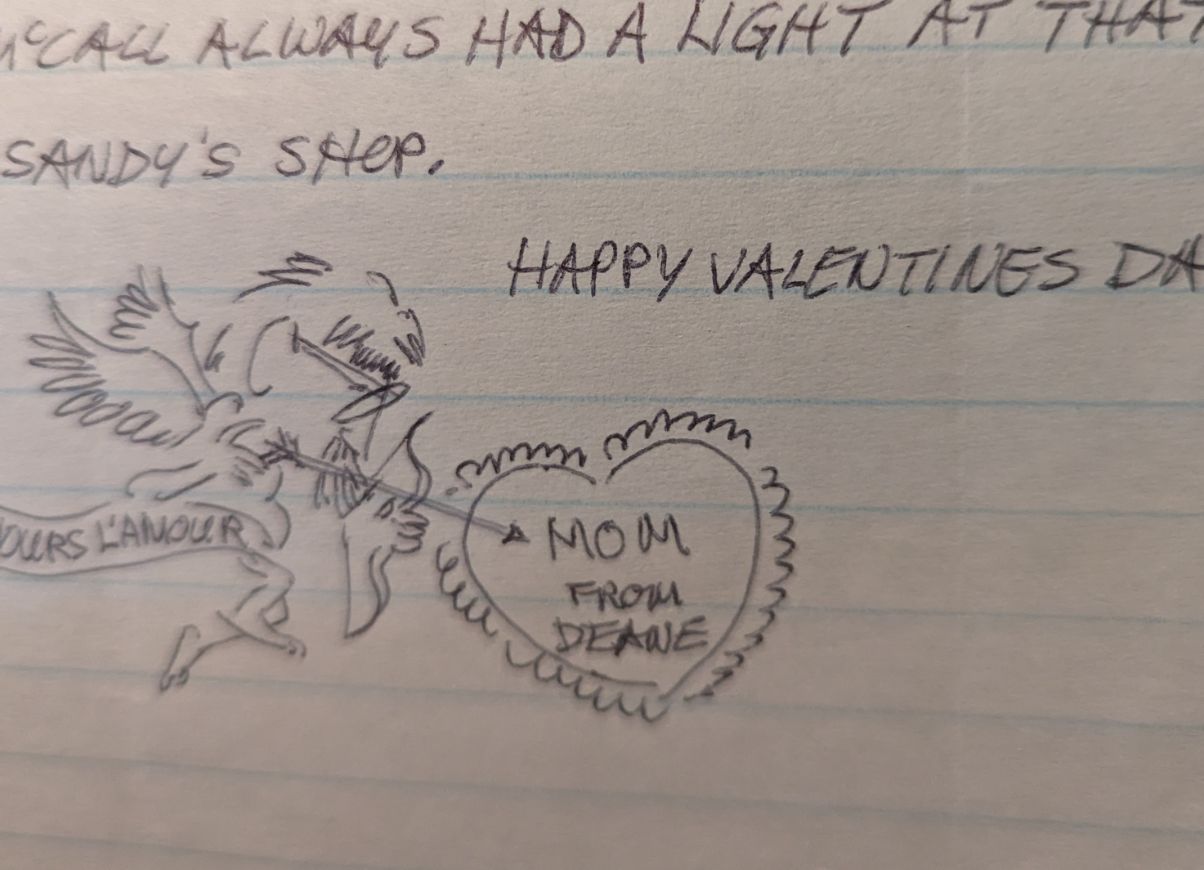 McCALL ALWAYS HAD A LIGHT AT THAT
SANDY'S SHOP.
HAPPY VALENTINES DA
OURS L'AMOUR
MOM
FROM
DEANE